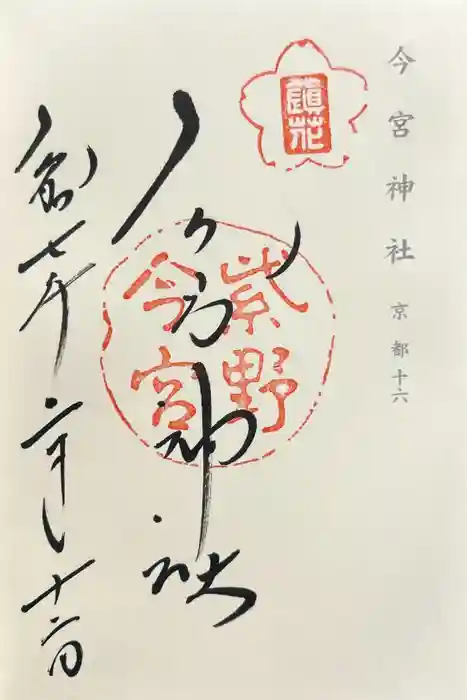 今宮神社 京都十六
鎮花
今宮神社
紫野
今宮
令和七年二月十六日